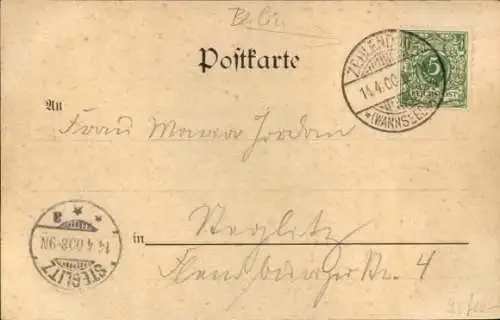 Berlin
Postkarte
ZEHLENDORF
14.4.00
* (WANNSEEB
5
REICHSPOST
An
Frau Maria Jordan
in Steglitz
Flensburgerstr. 4
STEGLITZ
14.4.00.8-9N.
* * a